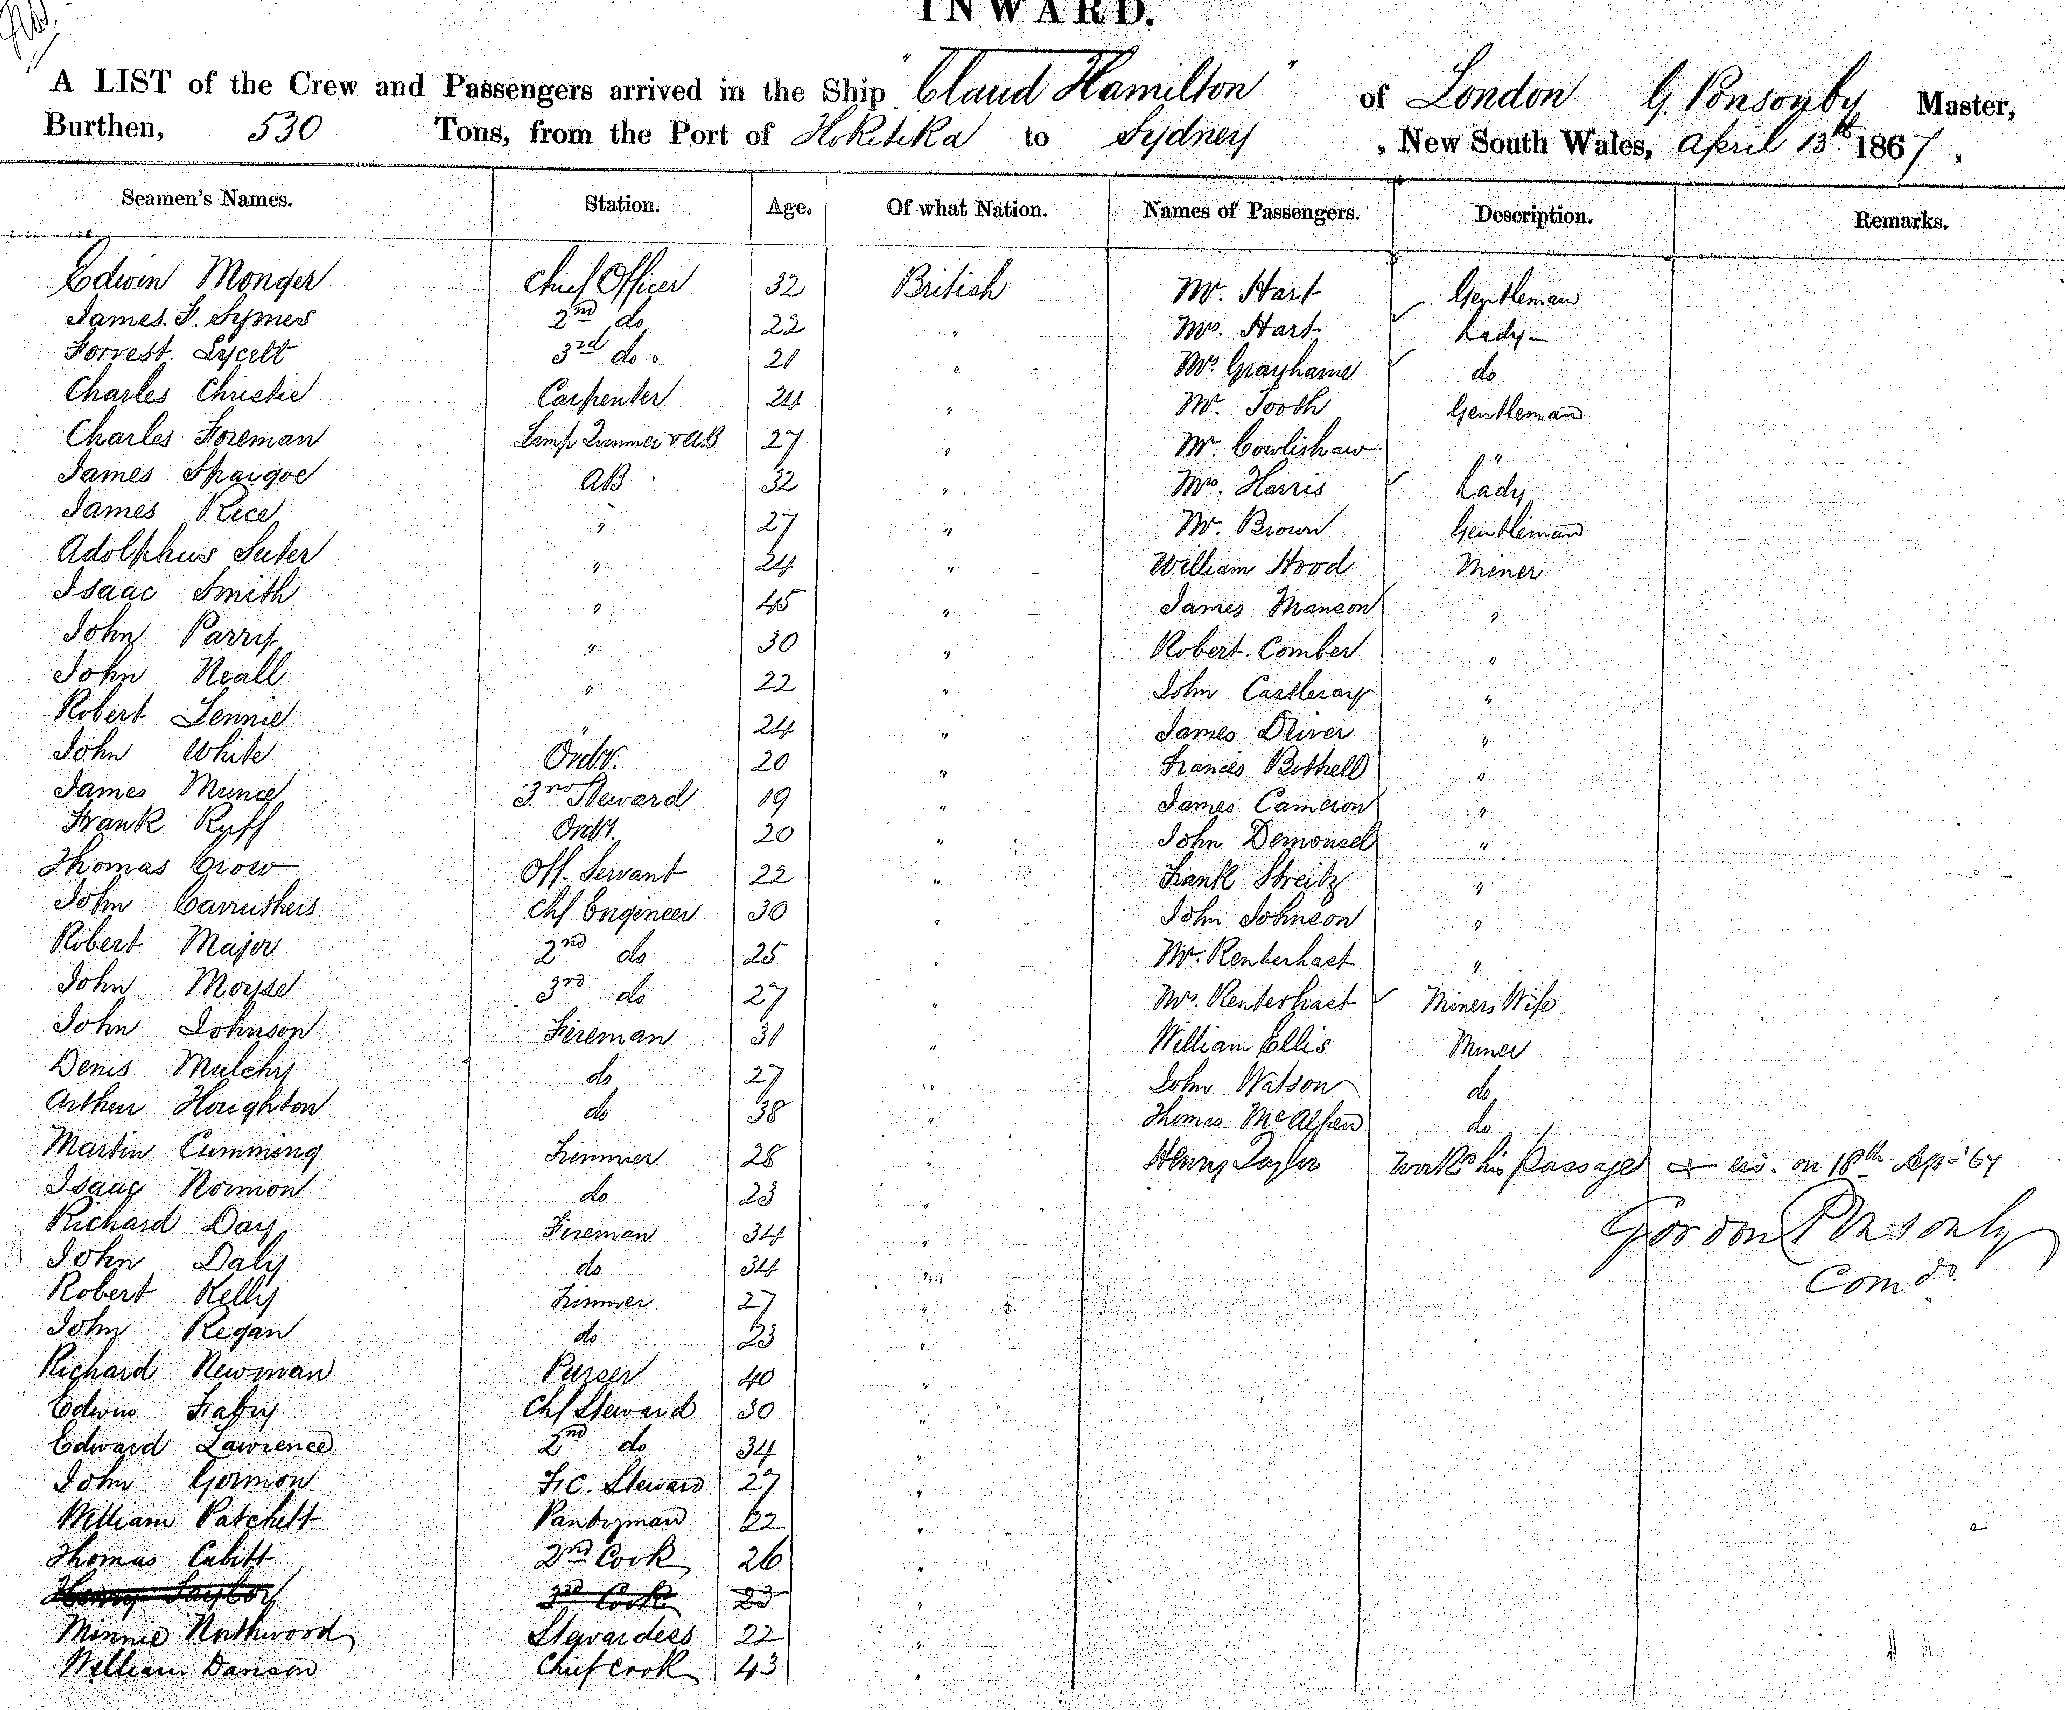 INWARD.
A LIST of the Crew and Passengers arrived in the Ship "Claud Hamilton" of London G. Ponsonby Master,
Burthen, 530 Tons, from the Port of Hokitika to Sydney, New South Wales, April 13th 1867.
Seamen's Names. Station. Age. Of what Nation. Names of Passengers. Description. Remarks.
Edwin Monger Chief Officer 32 British Mr. Hart Gentleman
James. F. Symes 2nd do 22 " Mrs. Hart Lady
Forrest Lycett 3rd do 21 " Mrs. Grayhame do
Charles Christie Carpenter 24 " Mr. Tooth Gentleman
Charles Foreman Lamp Trimmer & AB 27 " Mr. Cowlishaw "
James AB 32 " Mrs. Harris Lady
James Rice " 27 " Mr. Brown Gentleman
Adolphus Suter " 24 " William Hood Miner
Isaac Smith " 45 " James Manson "
John Parry " 30 " Robert Comber "
John Neall " 22 " John Castleray "
Robert Lennie " 24 " James Oliver "
John White Ordy. 20 " Francis Bothell "
James Munce 3rd Steward 19 " James Cameron "
Frank Ryff Ordy. 20 " John "
Thomas Crow Off. Servant 22 " Frank Streitz "
John Carruthers Chf Engineer 30 " John Johnson "
Robert Major 2nd do 25 " Mr. "
John Moyse 3rd do 27 " Mrs. Miners Wife
John Johnson Fireman 31 " William Ellis Miner
Denis Mulchy do 27 " John Watson do
Arthur Houghton do 38 " Thomas McAlpan do
Martin Cumming Trimmer 28 " Henry Taylor Works his passage on 18th Apr '67
Isaac Norman do 23 " Gordon Ponsonby
Richard Day Fireman 34 " Comdr.
John Daly do 34 "
Robert Kelly Trimmer 27 "
John Regan do 23 "
Richard Newman Purser 40 "
Edwin Chf Steward 30 "
Edward Lawrence 2nd do 34 "
John Gorman F.C. Steward 27 "
William Patchett Pantryman 22 "
Thomas Cubitt 2nd Cook 26 "
Henry Taylor 3rd Cook 23 "
Minnie Northwood Stewardess 22 "
William Danson Chief Cook 43 "